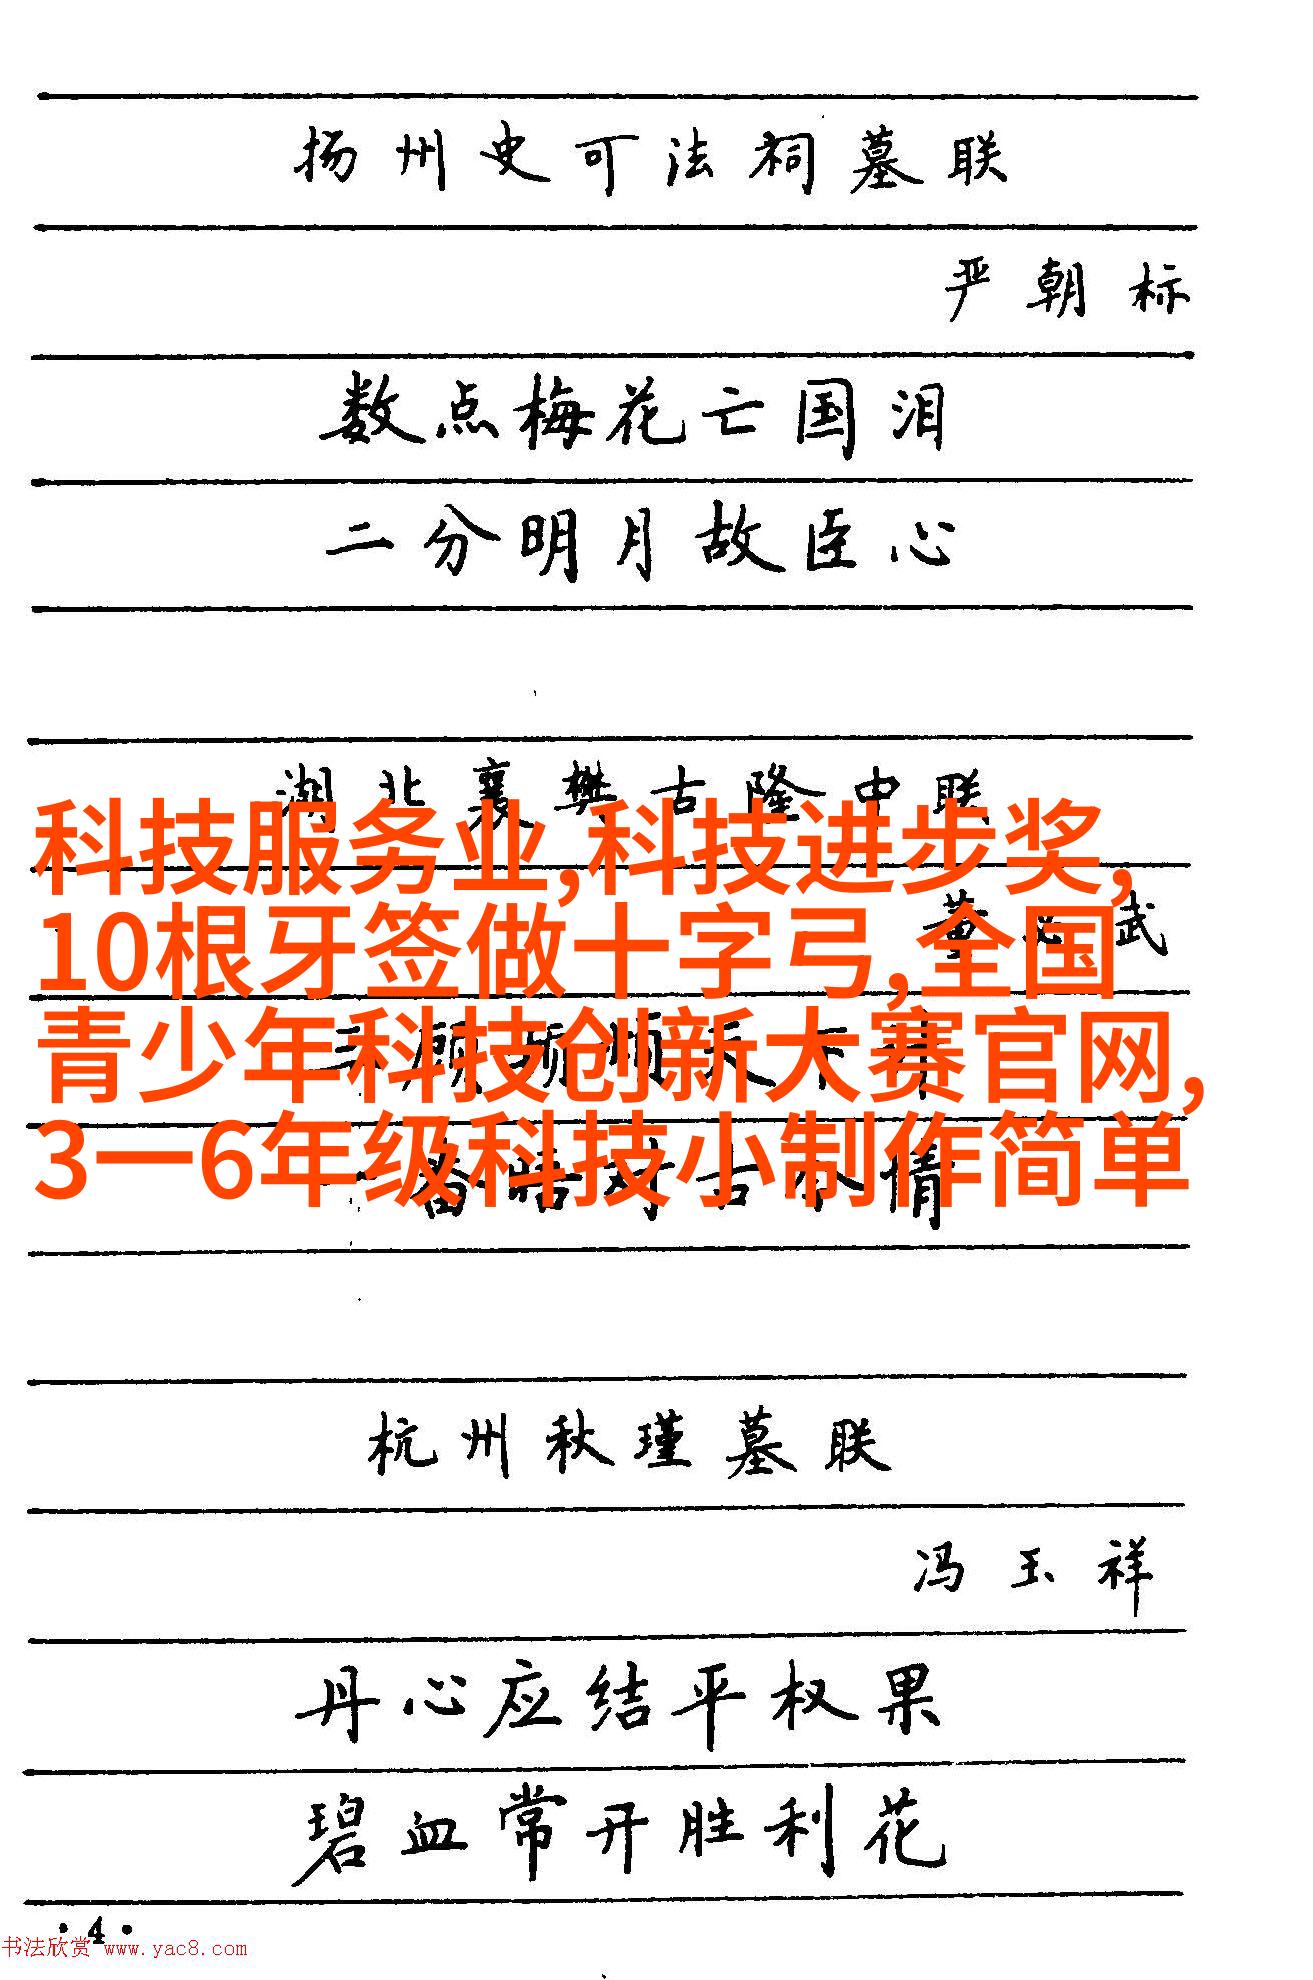 扬州史可法祠墓联
严朝标
数点梅花亡国泪
二分明月故臣心
湖北襄樊古隆中联
科技服务业,科技进步奖,
董必武
10根牙签做十字弓,全国
青少年科技创新大赛官网,
3一6年级科技小制作简单
杭州秋瑾墓联
冯玉祥
丹心应结平权果
碧血常开胜利花
·4·
书法欣赏 www.yac8.com